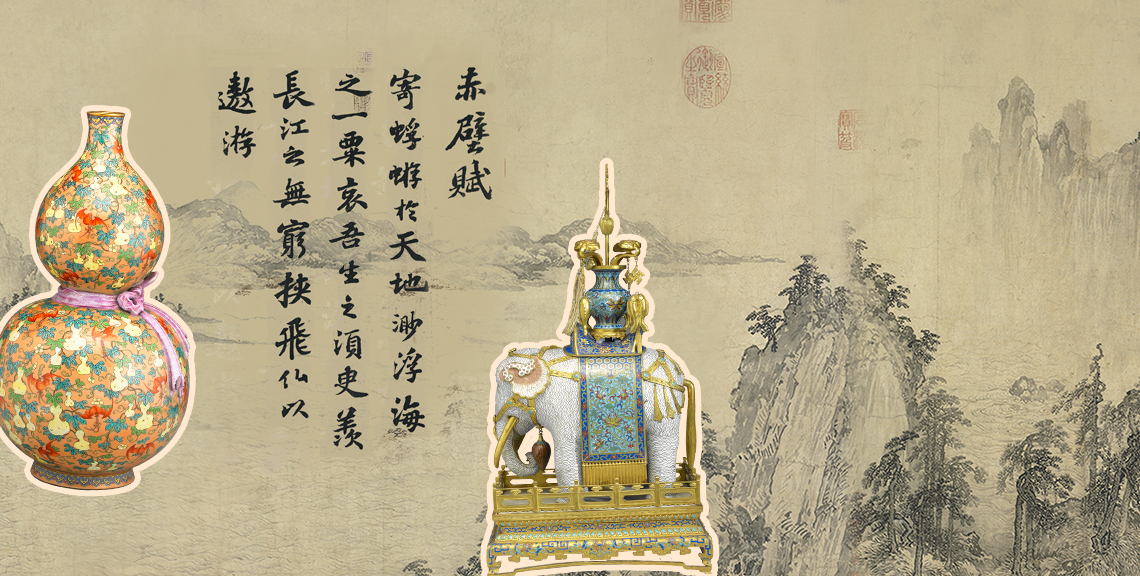 赤壁賦
寄蜉蝣於天地渺浮海
之一粟哀吾生之須臾羨
長江之無窮挾飛仙以
遨游